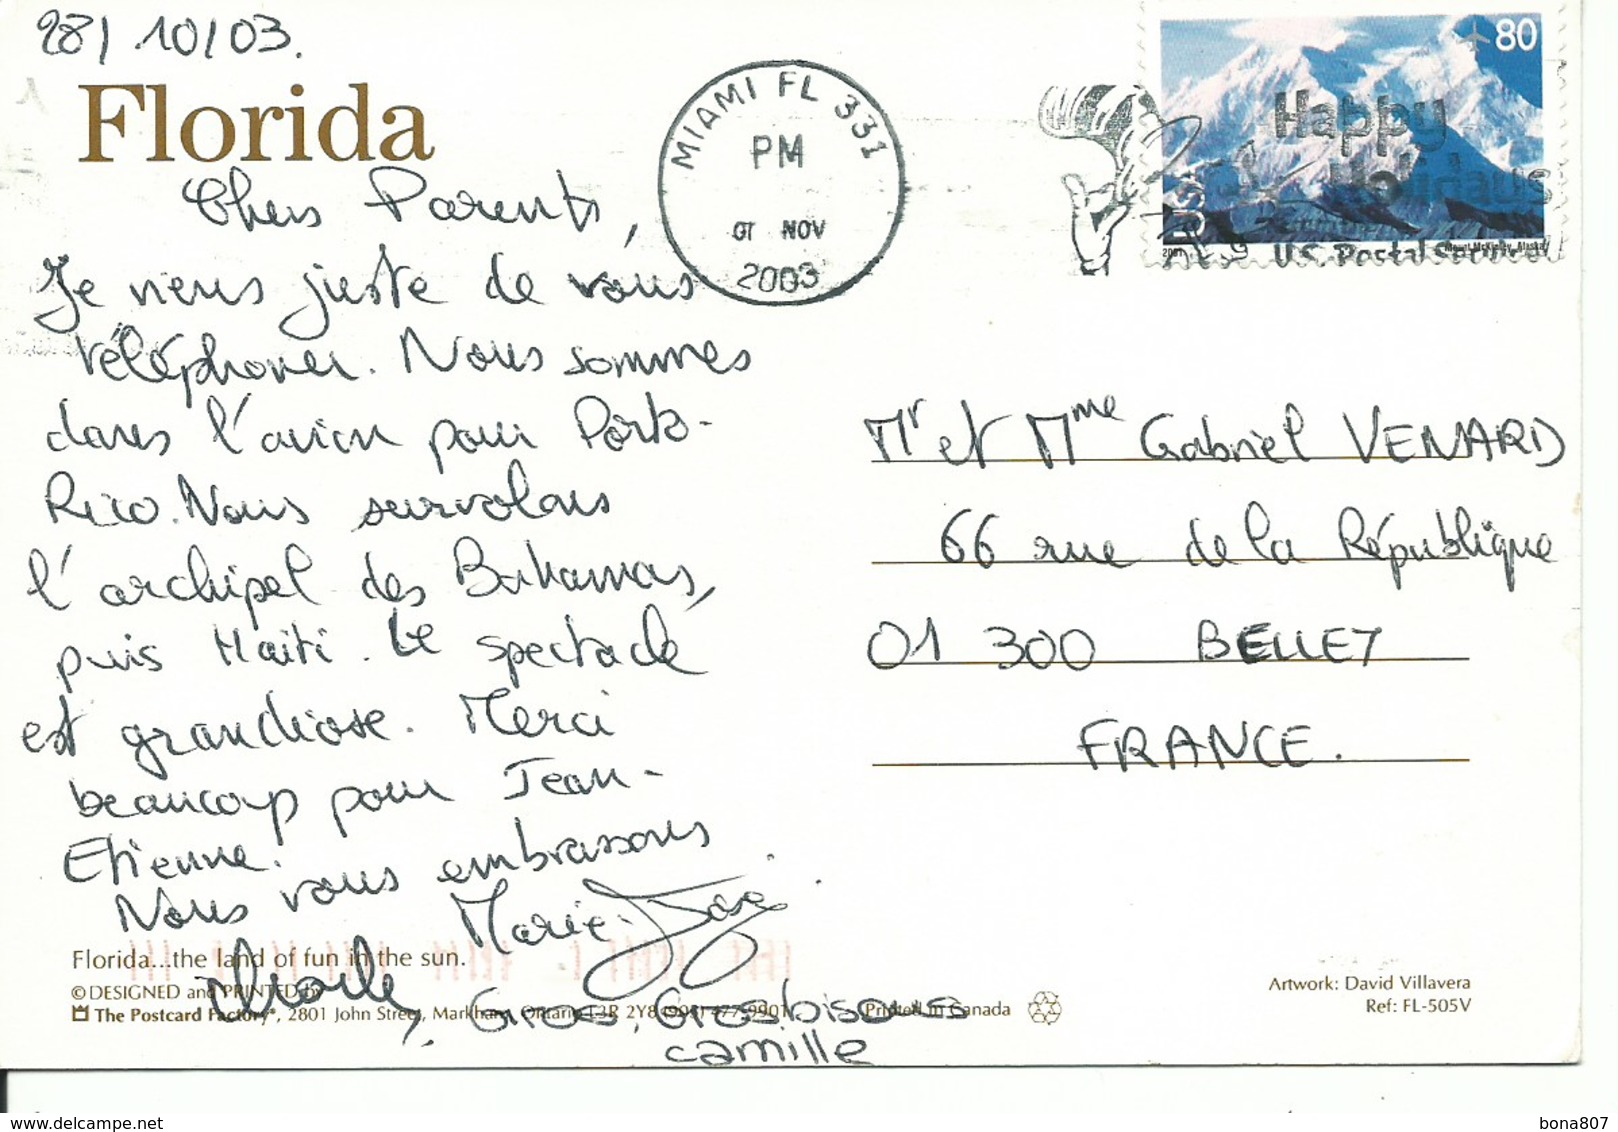 28/10/03.
Florida
Chers Parents,
Je viens juste de vous
téléphoner. Nous sommes
dans l'avion pour Porto-
Rico. Nous survolons
l'archipel des Bahamas,
puis Haïti. Le spectacle
est grandiose. Merci
beaucoup pour Jean-
Etienne.
Nous vous embrassons
Marie-José
Gros, Grosbisous
camille
Florida...the land of fun in the sun.
© DESIGNED and PRINTED by
The Postcard Factory®, 2801 John Street, Markham, Ontario L3R 2Y8 (905) 477-9901
Printed in Canada
MIAMI FL 331
PM
01 NOV
2003
80
USA
Happy
Holidays
2001
Mount McKinley, Alaska
U.S. Postal Service
Mr et Mme Gabriel VENARD
66 rue de la République
01 300 BELLEY
FRANCE.
Artwork: David Villavera
Ref: FL-505V
bona807